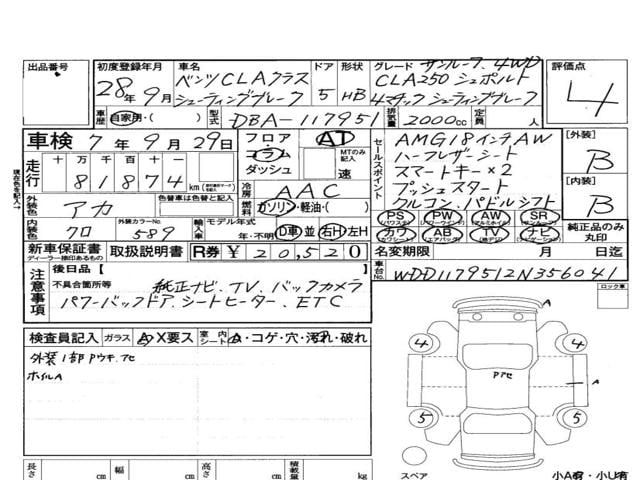 出品番号
初度登録年月
28年9月
車名
ベンツCLAクラス
シューティングブレーク
ドア 形状
5 HB
グレード サンルーフ、4WD
CLA250 シュポルト
4マチック シューティングブレーク
評価点
4
車歴 自家用・( )
型式 DBA-117951
排気量 2000cc
定員 人
車検 7年9月29日
フロア・AT
コラム
ダッシュ
MTのみ記入
速
セールスポイント
AMG18インチAW
ハーフレザーシート
スマートキー×2
プッシュスタート
クルコン、パドルシフト
[外装]
B
[内装]
B
走行 十 万 千 百 十 一
81874 km
冷房 AAC
外装色 アカ
色替車は色替と記入
燃料 ガソリン・軽油・( )
内装色 クロ
外装カラーNo.
589
輸入車 モデル年式
年・不明 D車 並 右H・左H
PS PW AW SR
カワ AB TV ナビ
純正品のみ丸印
新車保証書
ディーラー捺印あるもの
取扱説明書
R券 ¥20,520
名変期限 月 日迄
注意事項
後日品【 】
不具合箇所等 純正ナビ、TV、バックカメラ
パワーバックドア、シートヒーター、ETC
車台No. WDD1179512N356041
ロック車
検査員記入 ガラス A・X要ス 室内シート A・コゲ・穴・汚れ・破れ
外装1部Pウキ、アセ
ホイルA
4 4
Pアセ
A
A
5 5
スペア
小A有・小U有
長さ cm 幅 cm 高さ cm 積載量 kg